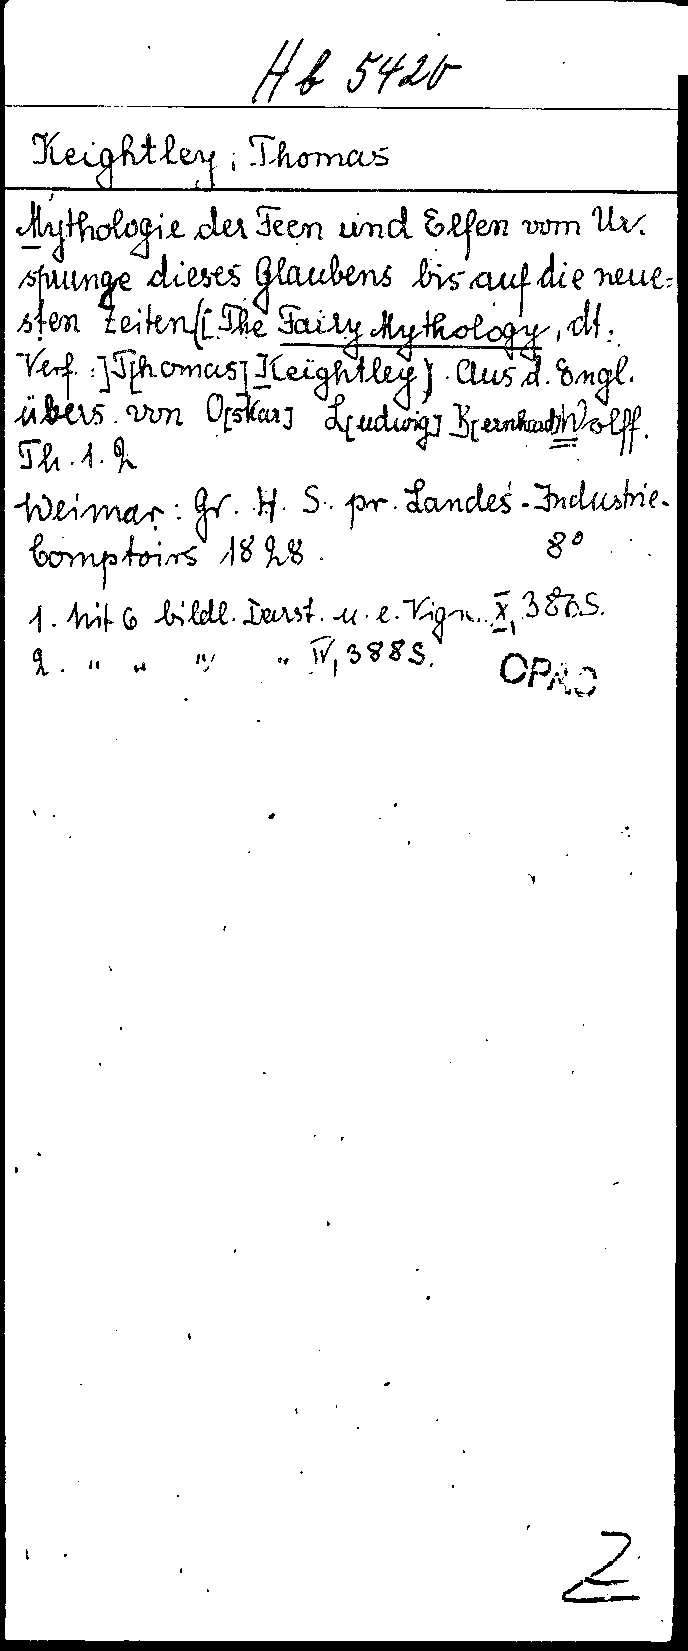 Hb 5420
Keightley, Thomas
Mythologie der Feen und Elfen vom Ur-
sprunge dieses Glaubens bis auf die neue-
sten Zeiten ([The Fairy Mythology, dt.
Verf.:] T[homas] Keightley). Aus d. Engl.
übers. von O[skar] L[udwig] B[ernhard] Wolff.
Th. 1. 2
Weimar: Gr. H. S. pr. Landes-Industrie-
Comptoirs 1828. 8°
1. Mit 6 bildl. Darst. u. e. Vign. X, S.
2. " " " " IV, 388 S.
OPAC
2